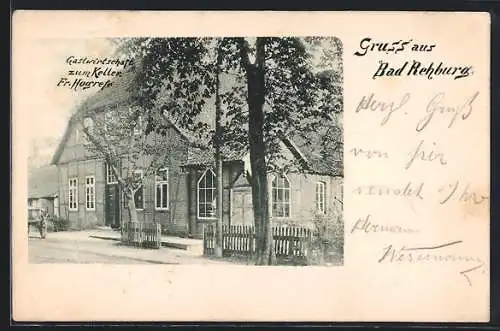 Gastwirtschaft
zum Keller
Fr. Hogrefe
Gruss aus
Bad Rehburg.
Herzl. Gruß
von hier
sendet Ihr
Hermann